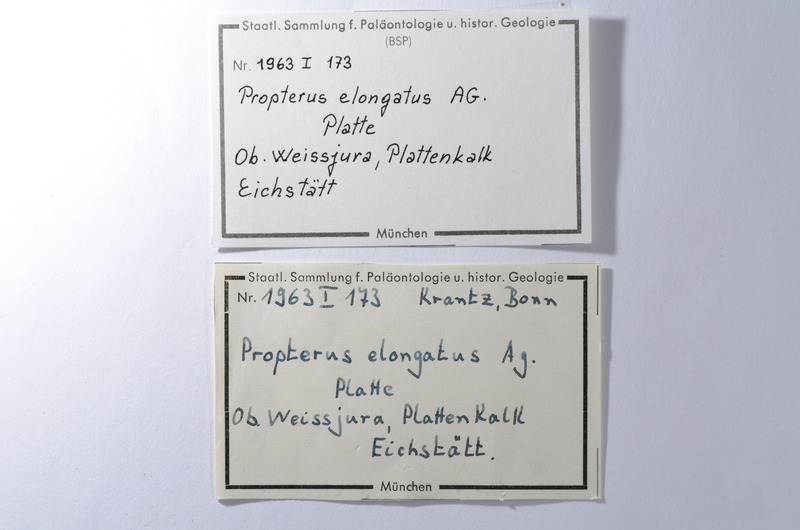 Staatl. Sammlung f. Paläontologie u. histor. Geologie
(BSP)
Nr. 1963 I 173
Propterus elongatus AG.
Platte
Ob. Weissjura, Plattenkalk
Eichstätt
München
Staatl. Sammlung f. Paläontologie u. histor. Geologie
Nr. 1963 I 173 Krantz, Bonn
Propterus elongatus Ag.
Platte
Ob. Weissjura, Plattenkalk
Eichstätt.
München